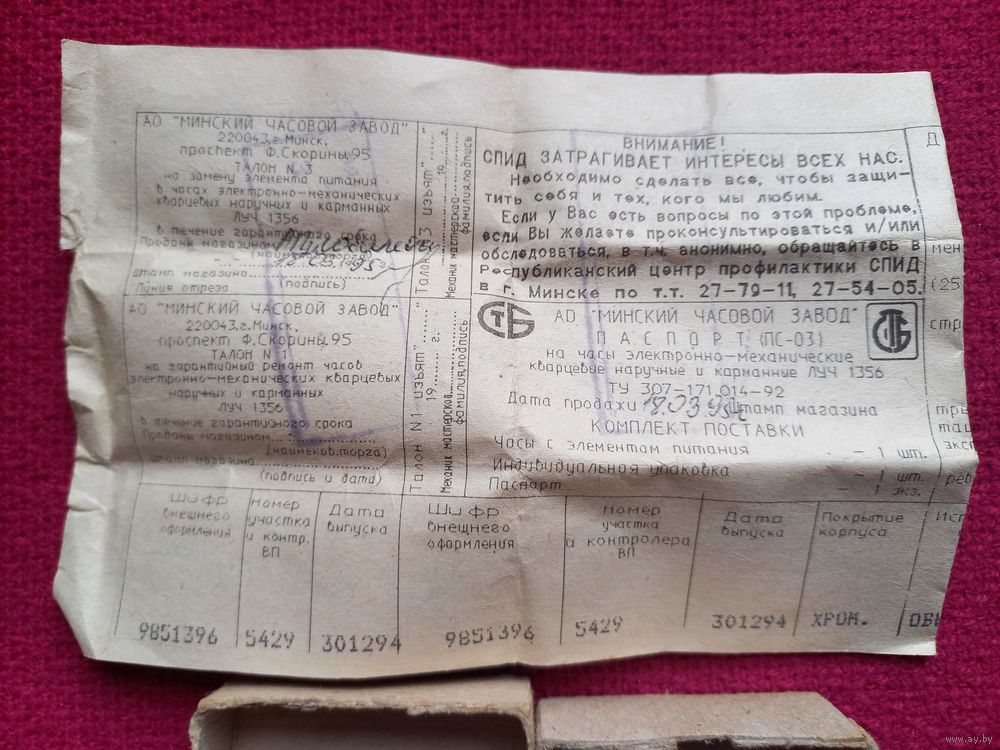 АО "МИНСКИЙ ЧАСОВОЙ ЗАВОД"
220043, г. Минск,
проспект Ф.Скорины, 95
ТАЛОН N 3
на замену элемента питания
в часах электронно-механических
кварцевых наручных и карманных
ЛУЧ 1356
в течение гарантийного срока
Проданы магазином
(наимен.торга)
Штамп магазина
(подпись)
Линия отреза
Талон N 3 изъят"
19 г.
Механик мастерской
фамилия,подпись
ВНИМАНИЕ!
СПИД ЗАТРАГИВАЕТ ИНТЕРЕСЫ ВСЕХ НАС.
Необходимо сделать все, чтобы защи-
тить себя и тех, кого мы любим.
Если у Вас есть вопросы по этой проблеме,
если Вы желаете проконсультироваться и/или
обследоваться, в т.ч. анонимно, обращайтесь в
Республиканский центр профилактики СПИД
в г. Минске по т.т. 27-79-11, 27-54-05.
АО "МИНСКИЙ ЧАСОВОЙ ЗАВОД"
220043, г. Минск,
проспект Ф.Скорины, 95
ТАЛОН N 1
на гарантийный ремонт часов
электронно-механических кварцевых
наручных и карманных
ЛУЧ 1356
в течение гарантийного срока
Проданы магазином
(наименов.торга)
Штамп магазина
(подпись и дата)
Талон N 1 изъят"
19 г.
Механик мастерской
фамилия,подпись
СТБ
АО "МИНСКИЙ ЧАСОВОЙ ЗАВОД"
ПАСПОРТ (ПС-03)
на часы электронно-механические
кварцевые наручные и карманные ЛУЧ 1356
ТУ 307-171.014-92
Дата продажи 18.03.95г Штамп магазина
КОМПЛЕКТ ПОСТАВКИ
Часы с элементом питания - 1 шт.
Индивидуальная упаковка - 1 шт.
Паспорт - 1 экз.
Шифр внешнего оформления
Номер участка и контр. ВП
Дата выпуска
Шифр внешнего оформления
Номер участка и контролера ВП
Дата выпуска
Покрытие корпуса
9851396 5429 301294 9851396 5429 301294 ХРОМ.
Д
мен
(25
стр
тре
таи
экс
реб
Исп
ОВ
www.ay.by